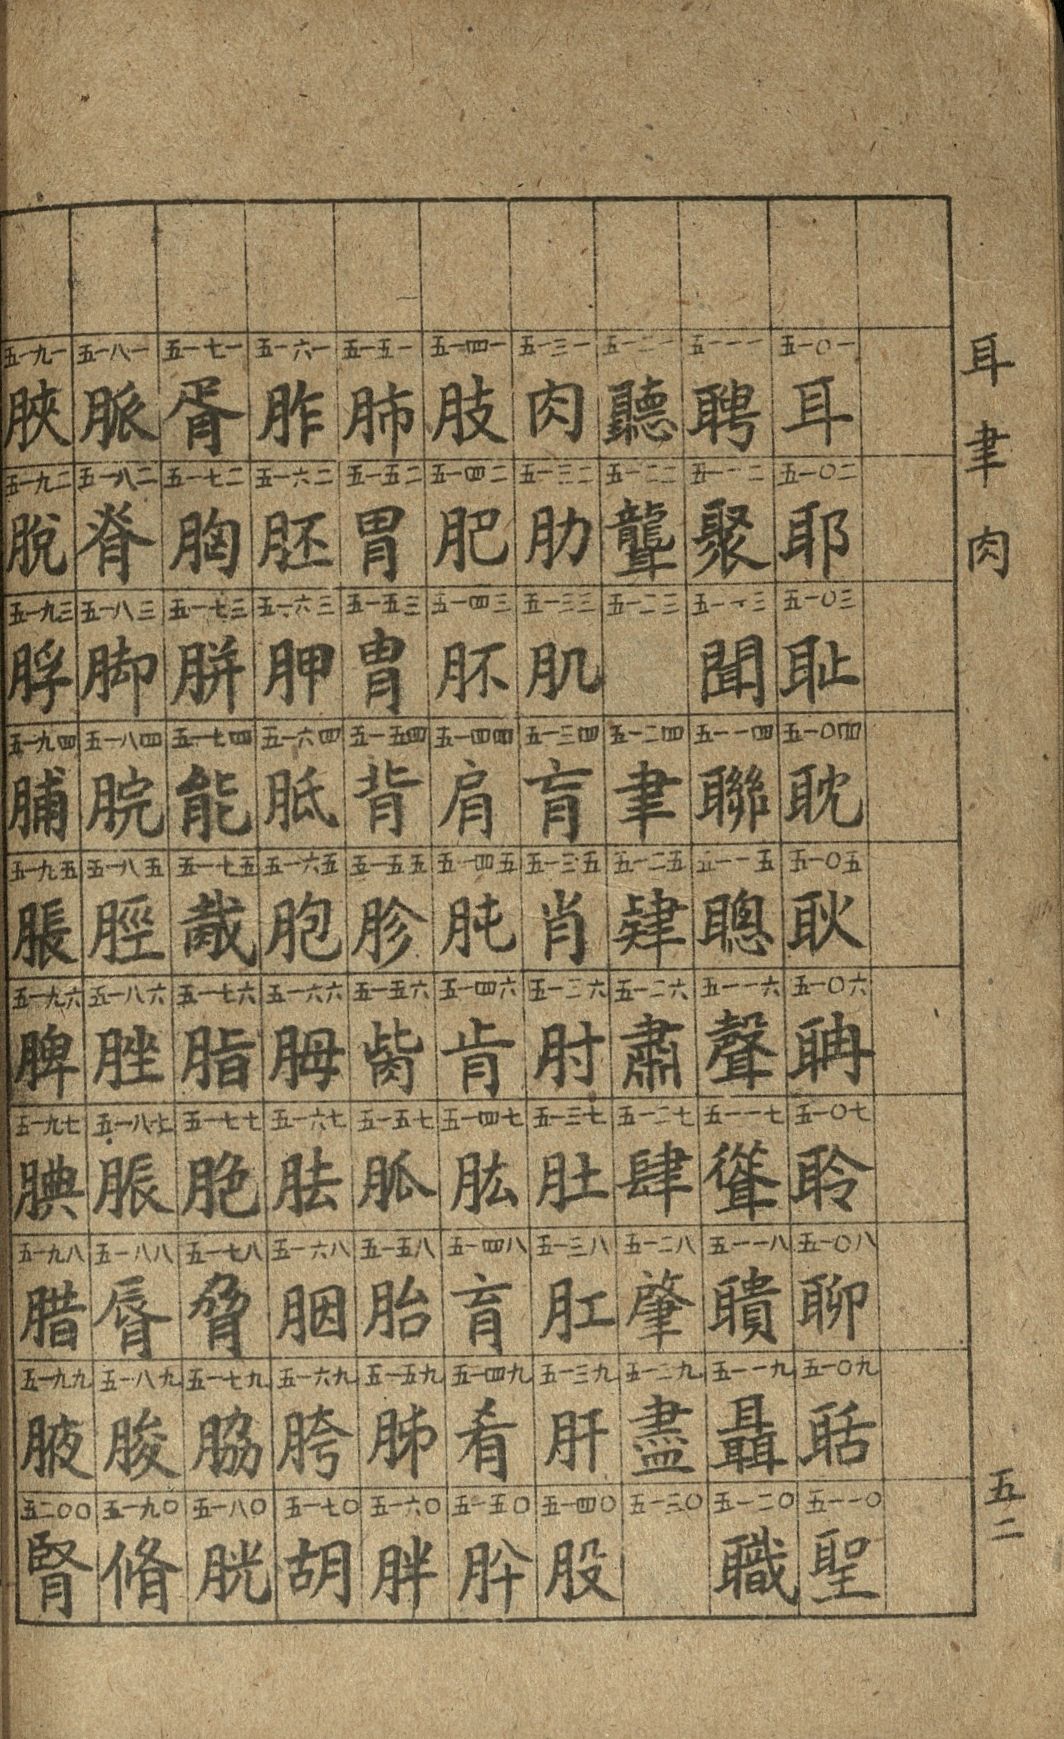 耳 聿 肉
五二
五一〇一 耳
五一〇二 耶
五一〇三 耻
五一〇四 耽
五一〇五 耿
五一〇六 聃
五一〇七 聆
五一〇八 聊
五一〇九 聒
五一一〇 聖
五一一一 聘
五一一二 聚
五一一三 聞
五一一四 聯
五一一五 聰
五一一六 聲
五一一七 聳
五一一八 聵
五一一九 聶
五一二〇 職
五一二一 聽
五一二二 聾
五一二三
五一二四 聿
五一二五 肄
五一二六 肅
五一二七 肆
五一二八 肇
五一二九 盡
五一三〇
五一三一 肉
五一三二 肋
五一三三 肌
五一三四 肓
五一三五 肖
五一三六 肘
五一三七 肚
五一三八 肛
五一三九 肝
五一四〇 股
五一四一 肢
五一四二 肥
五一四三 肧
五一四四 肩
五一四五 肫
五一四六 肯
五一四七 肱
五一四八 育
五一四九 肴
五一五〇 肸
五一五一 肺
五一五二 胃
五一五三 胄
五一五四 背
五一五五 胗
五一五六 胔
五一五七 胍
五一五八 胎
五一五九 胏
五一六〇 胖
五一六一 胙
五一六二 胚
五一六三 胛
五一六四 胝
五一六五 胞
五一六六 胟
五一六七 胠
五一六八 胭
五一六九 胯
五一七〇 胡
五一七一 胥
五一七二 胸
五一七三 胼
五一七四 能
五一七五 胾
五一七六 脂
五一七七 脃
五一七八 脅
五一七九 脇
五一八〇 胱
五一八一 脈
五一八二 脊
五一八三 脚
五一八四 脘
五一八五 脛
五一八六 脞
五一八七 脤
五一八八 脣
五一八九 脧
五一九〇 脩
五一九一 脥
五一九二 脫
五一九三 脬
五一九四 脯
五一九五 脹
五一九六 脾
五一九七 腆
五一九八 腊
五一九九 腋
五二〇〇 腎